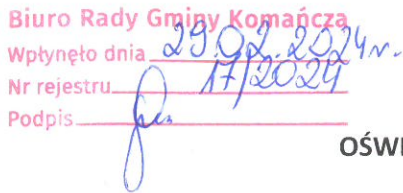 Biuro Rady Gminy Komańcza
Wpłynęło dnia 29.02.2024r.
Nr rejestru 17/2024
Podpis
OŚWI